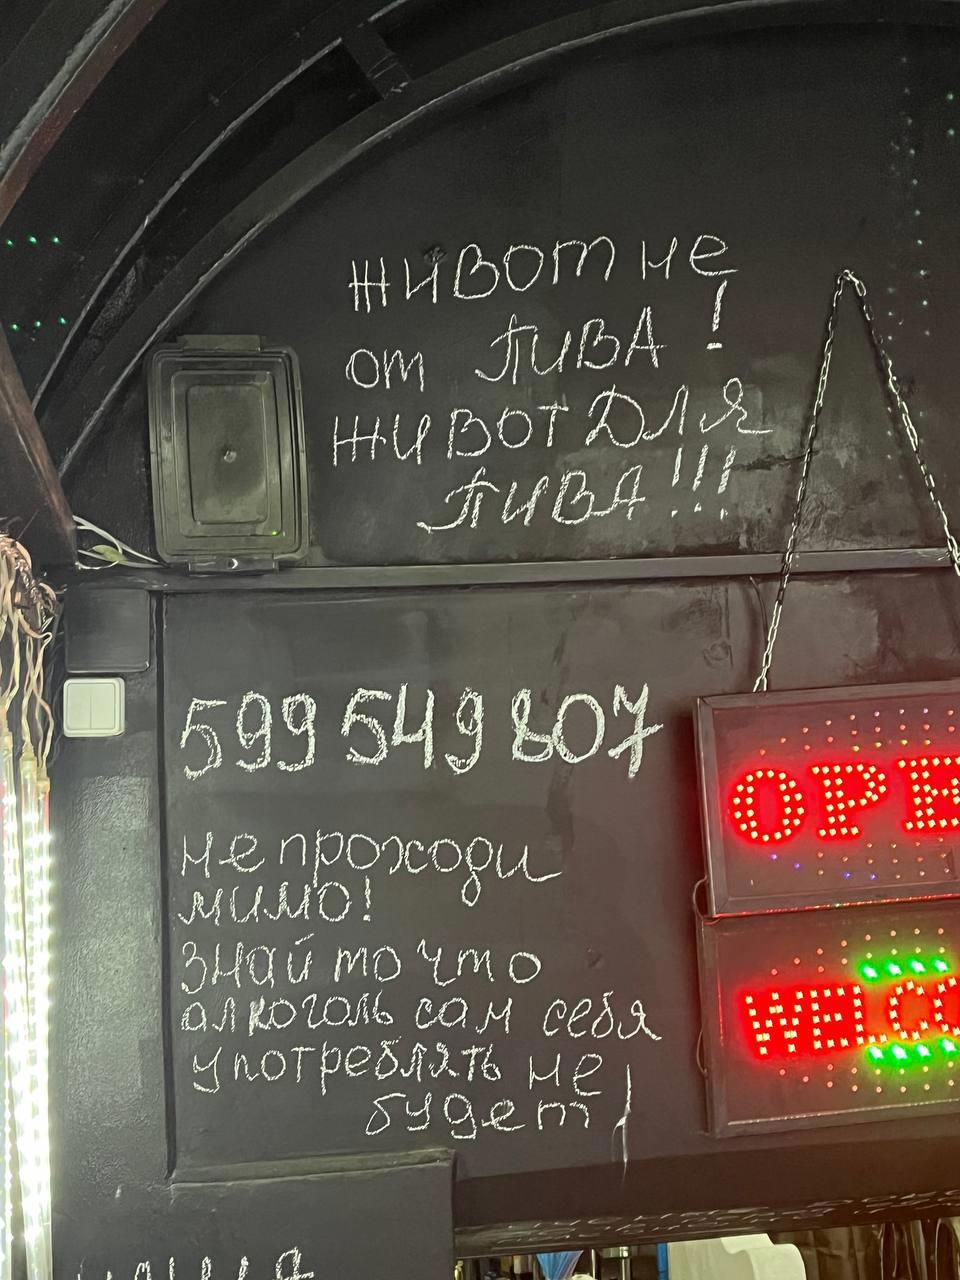 живот не
от ПИВА!
живот для
ПИВА!!!
599 549 807
не проходи
мимо!
Знай то что
алкоголь сам себя
употреблять не
будет!
OPE
WELCO